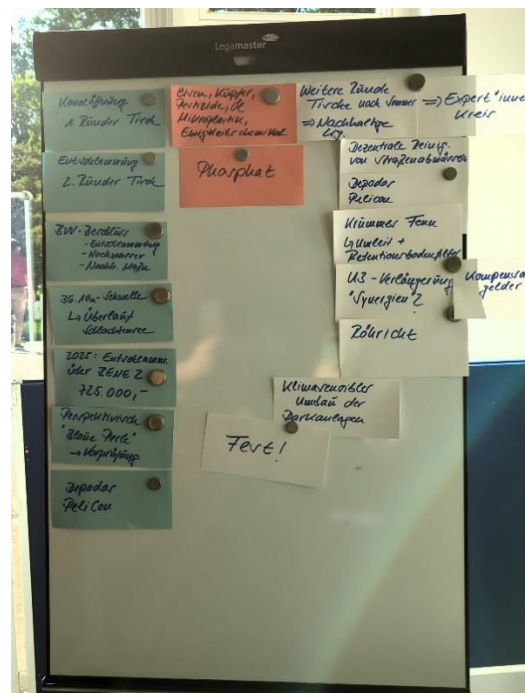 Legamaster
1. Runder Tisch
Entschlammung
2. Runder Tisch
BVV-Beschluss
- Entschlammung
- Hochwasser
- Nachh.
36.10m-Schwelle
↳ Überlauf
Schlachtensee
2025: Entschlamm.
über BENE 2
725.000,-
Perspektivisch
"Blaue Perle"
→ Vorprüfung
Depodos
PeliCon
Eisen, Kupfer,
Pestizide, Öl
Mikroplastik,
Ewigkeitschemikal.
Phosphat
Weitere Runde
Tische nach Sommer
=> Nachhaltige
=> Expert*inne
kreis
Dezentrale Reinig.
von Straßenabwässern
Depodos
Pelicon
Krummes Fenn
↳ Umleit +
Retentionsbodenfilter
U3-Verlängerung
"Synergien"?
Kompensa
gelder
Röhricht
Klimasensibler
Umbau der
Parkanlagen
Fest!